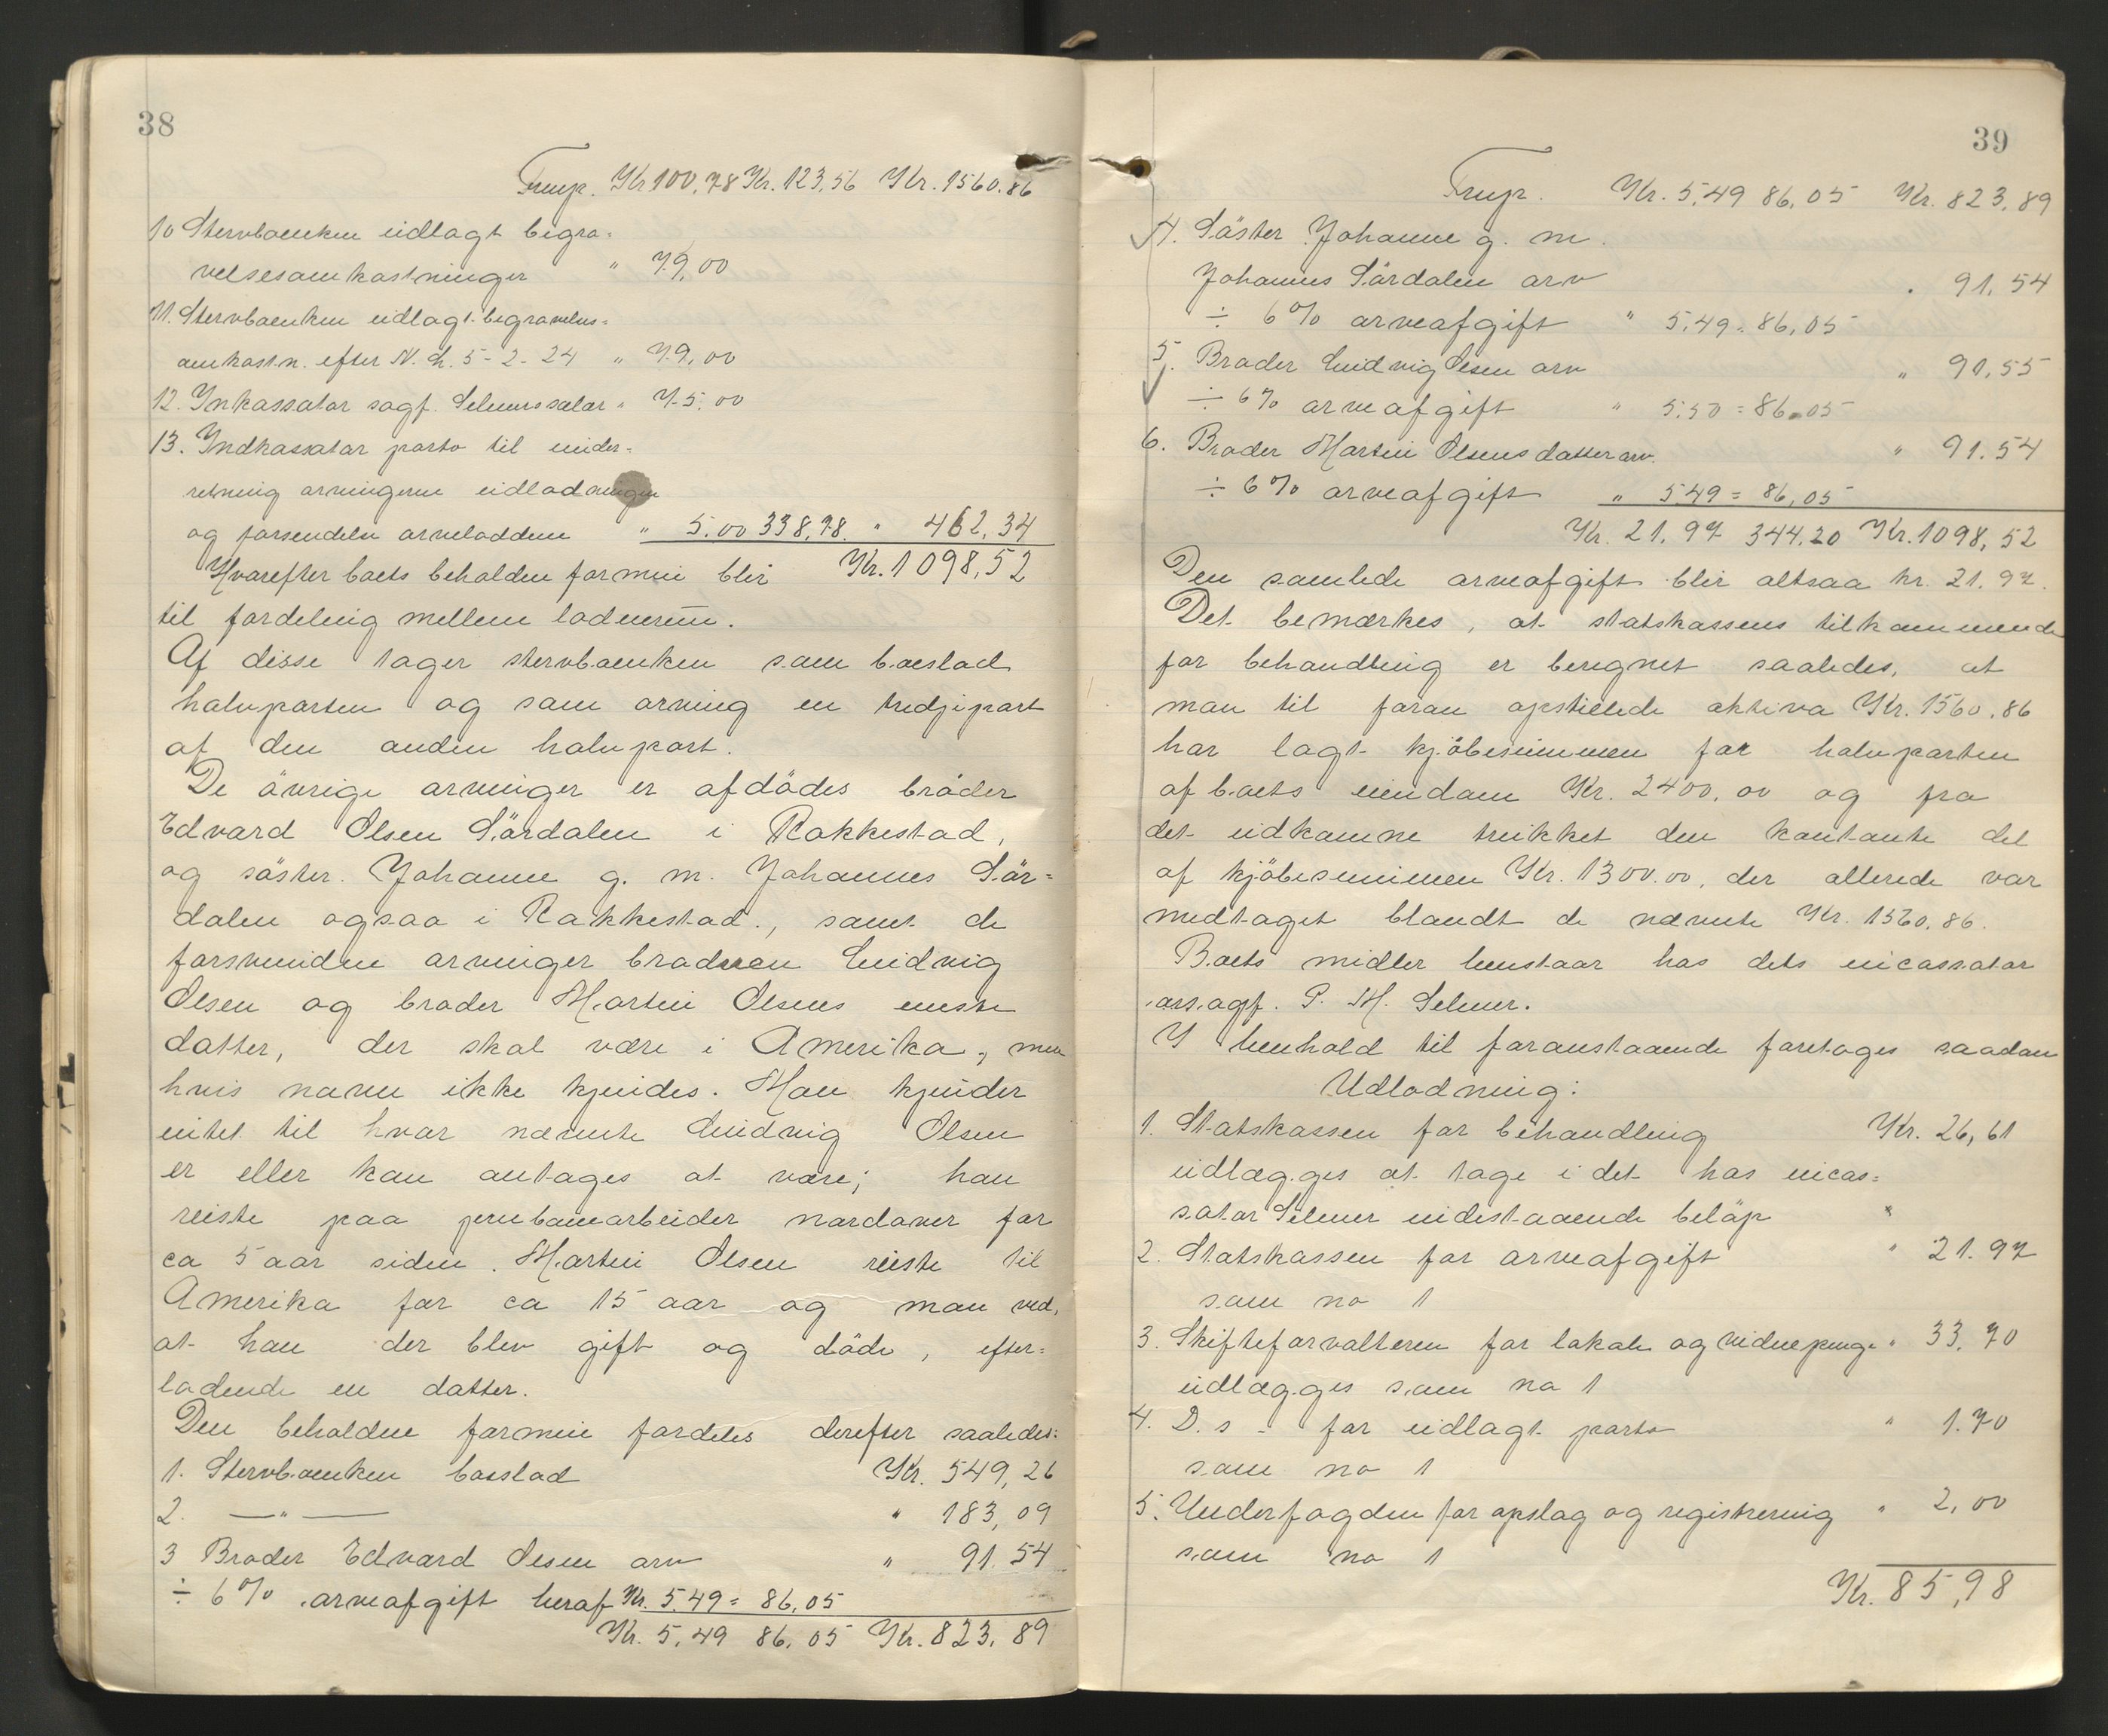 38
Transp. Kr. 100,78 Kr. 123,56 Kr. 1560.86
10 Stervboenken utlagt begra-
velsesomkostninger " 79,00
11. Stervboenken utlagt begravelses-
omkostn. efter N. L. 5-2-24 " 79,00
12. Inkassator sagf. Selmers salær " 75,00
13. Indkassator porto til under-
retning arvingerne utlodningen
og forsendelse arveloddene " 5.00 338,78 " 462,34
Hvorefter boets beholdne formue blir Kr. 1098,52
til fordeling mellem lodeierne.
Af disse tager stervboenken som boeslod
halvparten og som arving en tredjepart
af den anden halvpart.
De övrige arvinger er afdödes bröder
Edvard Olsen Sördalen i Rakkestad,
og söster Johanne g. m. Johannes Sör-
dalen ogsaa i Rakkestad., samt de
forsvundne arvinger broderen Ludvig
Olsen og broder Martin Olsens eneste
datter, der skal være i Amerika, men
hvis navn ikke kjendes. Man kjender
intet til hvor nævnte Ludvig Olsen
er eller kan antages at være; han
reiste paa jernbanearbeider nordover for
ca 5 aar siden. Martin Olsen reiste til
Amerika for ca 15 aar og man ved,
at han der blev gift og döde, efter-
ladende en datter.
Den beholdne formue fordeles derefter saaledes:
1. Stervboenken boeslod Kr. 549,26
2. —"— " 183,09
3 Broder Edvard Olsen arv " 91.54
÷ 6% arveafgift heraf Kr. 5.49 = 86,05
Kr. 5,49 86.05 Kr. 823.89
39
Trsp. Kr. 5,49 86,05 Kr. 823,89
4. Söster Johanne g. m.
Johannes Sördalen arv " 91.54
÷ 6% arveafgift " 5,49 = 86,05
5. Broder Ludvig Olsen arv " 91,55
÷ 6% arveafgift " 5.50 = 86.05
6. Broder Martin Olsens datter arv. " 91.54
÷ 6% arveafgift " 5.49 = 86,05
Kr. 21.97 344.20 Kr. 1098,52
Den samlede arveafgift blir altsaa kr. 21.97.
Det bemærkes, at statskassens tilkommende
for behandling er beregnet saaledes, at
man til foran opstillede aktiva Kr. 1560.86
har lagt kjöbesummen for halvparten
af boets eiendom Kr. 2400,00 og fra
det utkomne trukket den kontante del
af kjöbesummen Kr. 1300.00, der allerede var
medtaget blandt de nævnte Kr. 1560,86.
Boets midler henstaar hos dets incassator
o.r.sagf. P. M. Selmer.
I henhold til foranstaaende foretages saadan
Udlodning:
1. Statskassen for behandling Kr. 26,61
utlægges at tage i det hos incas-
sator Selmer indestaaende belöp "
2. Statskassen for arveafgift " 21.97
som no 1
3. Skifteforvalteren for lokale og vidnepenge " 33,70
utlægges som no 1
4. D. s - for utlagt porto " 1.70
som no 1
5. Underfogden for opslag og registrering " 2,00
som no 1
Kr. 85,98